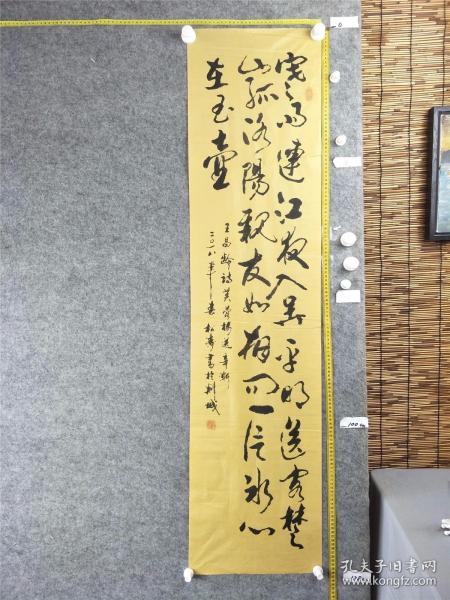 寒雨连江夜入吴平明送客楚
山孤洛陽親友如相问一片冰心
在玉壶
王昌龄诗芙蓉楼送辛渐
二〇一八年春松涛書於荆城
孔夫子旧书网
www.kongfz.com
0
100cm